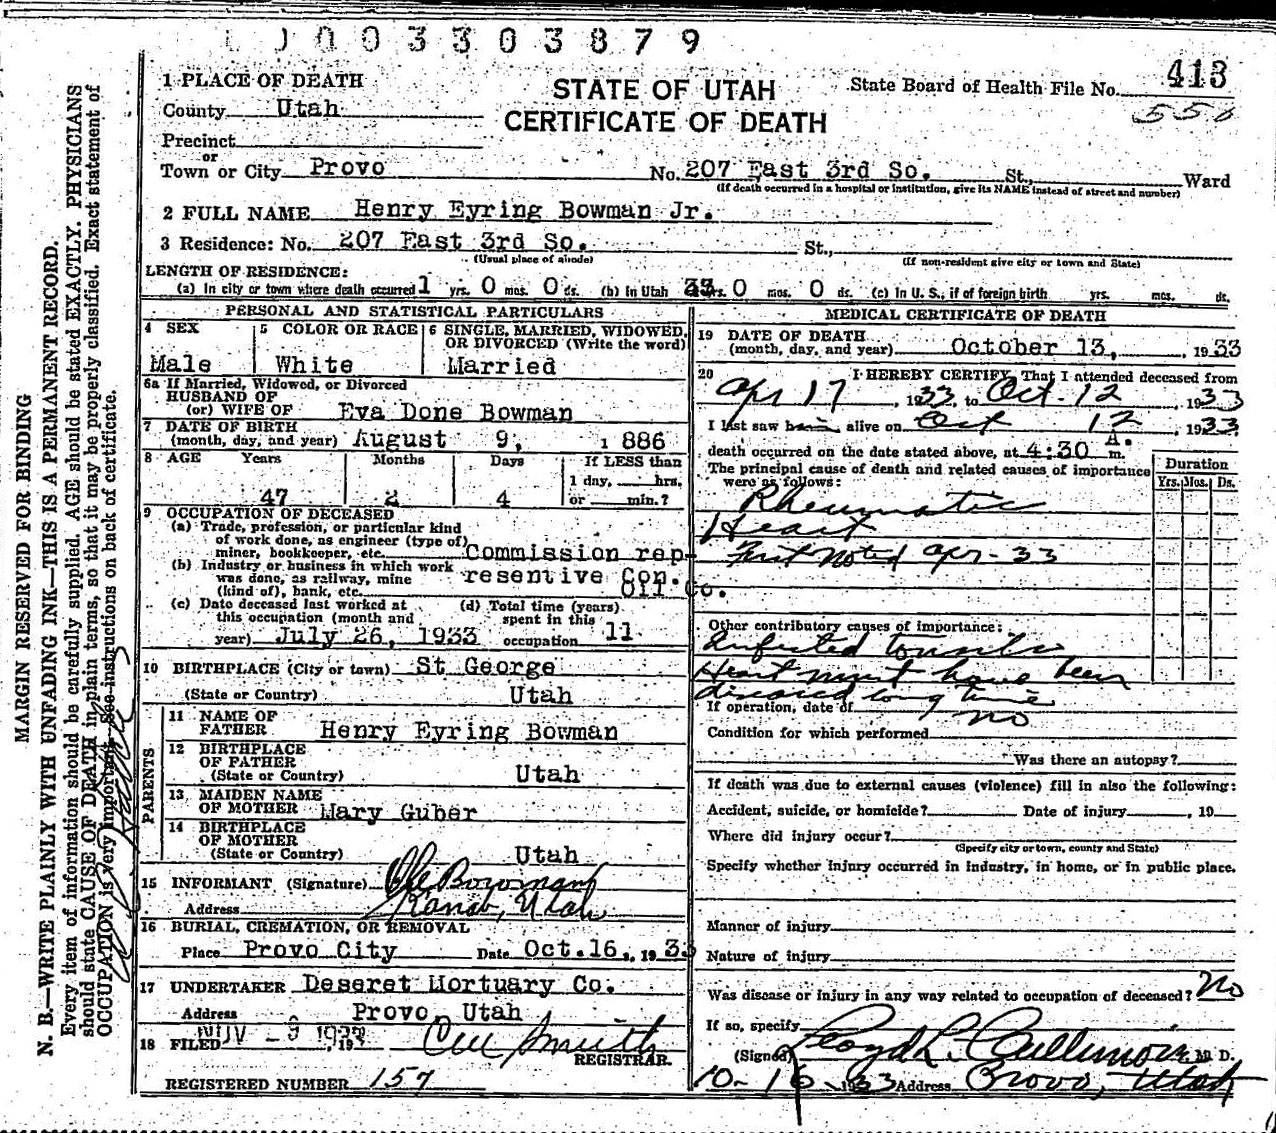 0003303879
1 PLACE OF DEATH
STATE OF UTAH
CERTIFICATE OF DEATH
State Board of Health File No. 413
558
County Utah
Precinct
or
Town or City Provo No. 207 East 3rd So. St., Ward
(If death occurred in a hospital or institution, give its NAME instead of street and number)
2 FULL NAME Henry Eyring Bowman Jr.
3 Residence: No. 207 East 3rd So. St.,
(Usual place of abode) (If non-resident give city or town and State)
LENGTH OF RESIDENCE:
(a) In city or town where death occurred 1 yrs. 0 mos. 0 ds. (b) In Utah 33 yrs. 0 mos. 0 ds. (c) In U. S., if of foreign birth yrs. mos. ds.
PERSONAL AND STATISTICAL PARTICULARS
4 SEX
Male
5 COLOR OR RACE
White
6 SINGLE, MARRIED, WIDOWED,
OR DIVORCED (Write the word)
Married
6a If Married, Widowed, or Divorced
HUSBAND OF
(or) WIFE OF Eva Done Bowman
7 DATE OF BIRTH
(month, day, and year) August 9, 1886
8 AGE Years Months Days If LESS than
1 day, hrs.
47 2 4 or min.?
9 OCCUPATION OF DECEASED
(a) Trade, profession, or particular kind
of work done, as engineer (type of)
miner, bookkeeper, etc. Commission rep-
(b) Industry or business in which work
was done, as railway, mine resentive Con.
(kind of), bank, etc. Oil Co.
(c) Date deceased last worked at
this occupation (month and
year) July 26, 1933
(d) Total time (years)
spent in this
occupation 11
10 BIRTHPLACE (City or town) St George
(State or Country) Utah
PARENTS
11 NAME OF
FATHER Henry Eyring Bowman
12 BIRTHPLACE
OF FATHER
(State or Country) Utah
13 MAIDEN NAME
OF MOTHER Mary Guber
14 BIRTHPLACE
OF MOTHER
(State or Country) Utah
15 INFORMANT (Signature) Bowman
Address Kanab, Utah
16 BURIAL, CREMATION, OR REMOVAL
Place Provo City Date Oct.16, 1933
17 UNDERTAKER Deseret Mortuary Co.
Address Provo, Utah
18 FILED NOV - 9 1933 Smith
REGISTRAR.
REGISTERED NUMBER 157
MEDICAL CERTIFICATE OF DEATH
19 DATE OF DEATH
(month, day, and year) October 13, 1933
20 I HEREBY CERTIFY, That I attended deceased from
Apr 17, 1933, to Oct. 12, 1933
I last saw him alive on Oct 12, 1933
death occurred on the date stated above, at 4:30 A. m.
The principal cause of death and related causes of importance
were as follows:
Duration
Yrs. Mos. Ds.
Rheumatic
Heart
First Noted Apr - 33
Other contributory causes of importance:
Infected tonsils
Heart must have been
diseased long time
If operation, date of no
Condition for which performed
Was there an autopsy?
If death was due to external causes (violence) fill in also the following:
Accident, suicide, or homicide? Date of injury , 19
Where did injury occur?
(Specify city or town, county and State)
Specify whether injury occurred in industry, in home, or in public place.
Manner of injury
Nature of injury
Was disease or injury in any way related to occupation of deceased? No
If so, specify
(Signed) Lloyd L. Cullimore, M. D.
10-16-1933 Address Provo, Utah
MARGIN RESERVED FOR BINDING
N. B.—WRITE PLAINLY WITH UNFADING INK—THIS IS A PERMANENT RECORD.
Every item of information should be carefully supplied. AGE should be stated EXACTLY. PHYSICIANS
should state CAUSE OF DEATH in plain terms, so that it may be properly classified. Exact statement of
OCCUPATION is very important. See instructions on back of certificate.